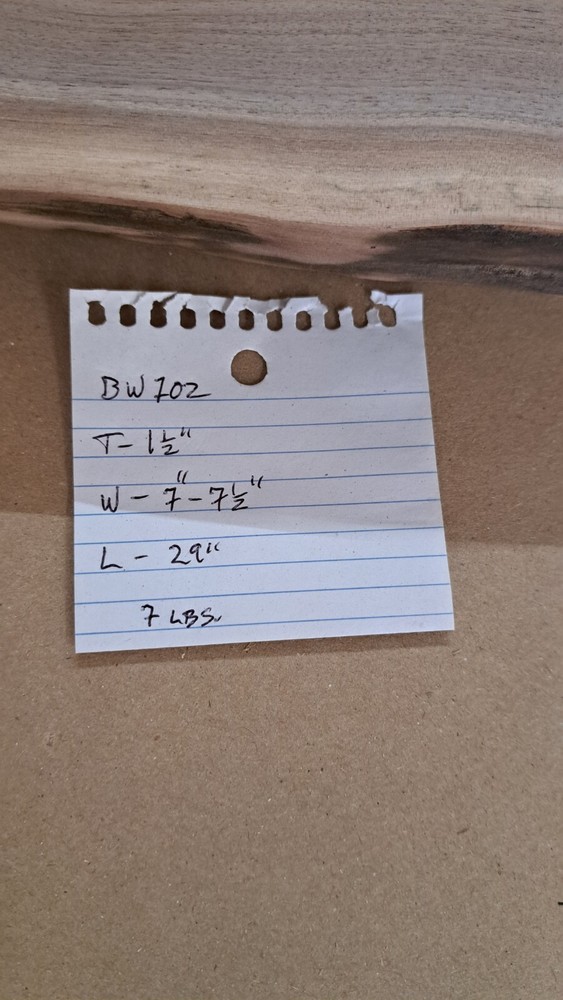 BW702
T- 1 1/2"
W - 7" - 7 1/2"
L - 29"
7 LBS.